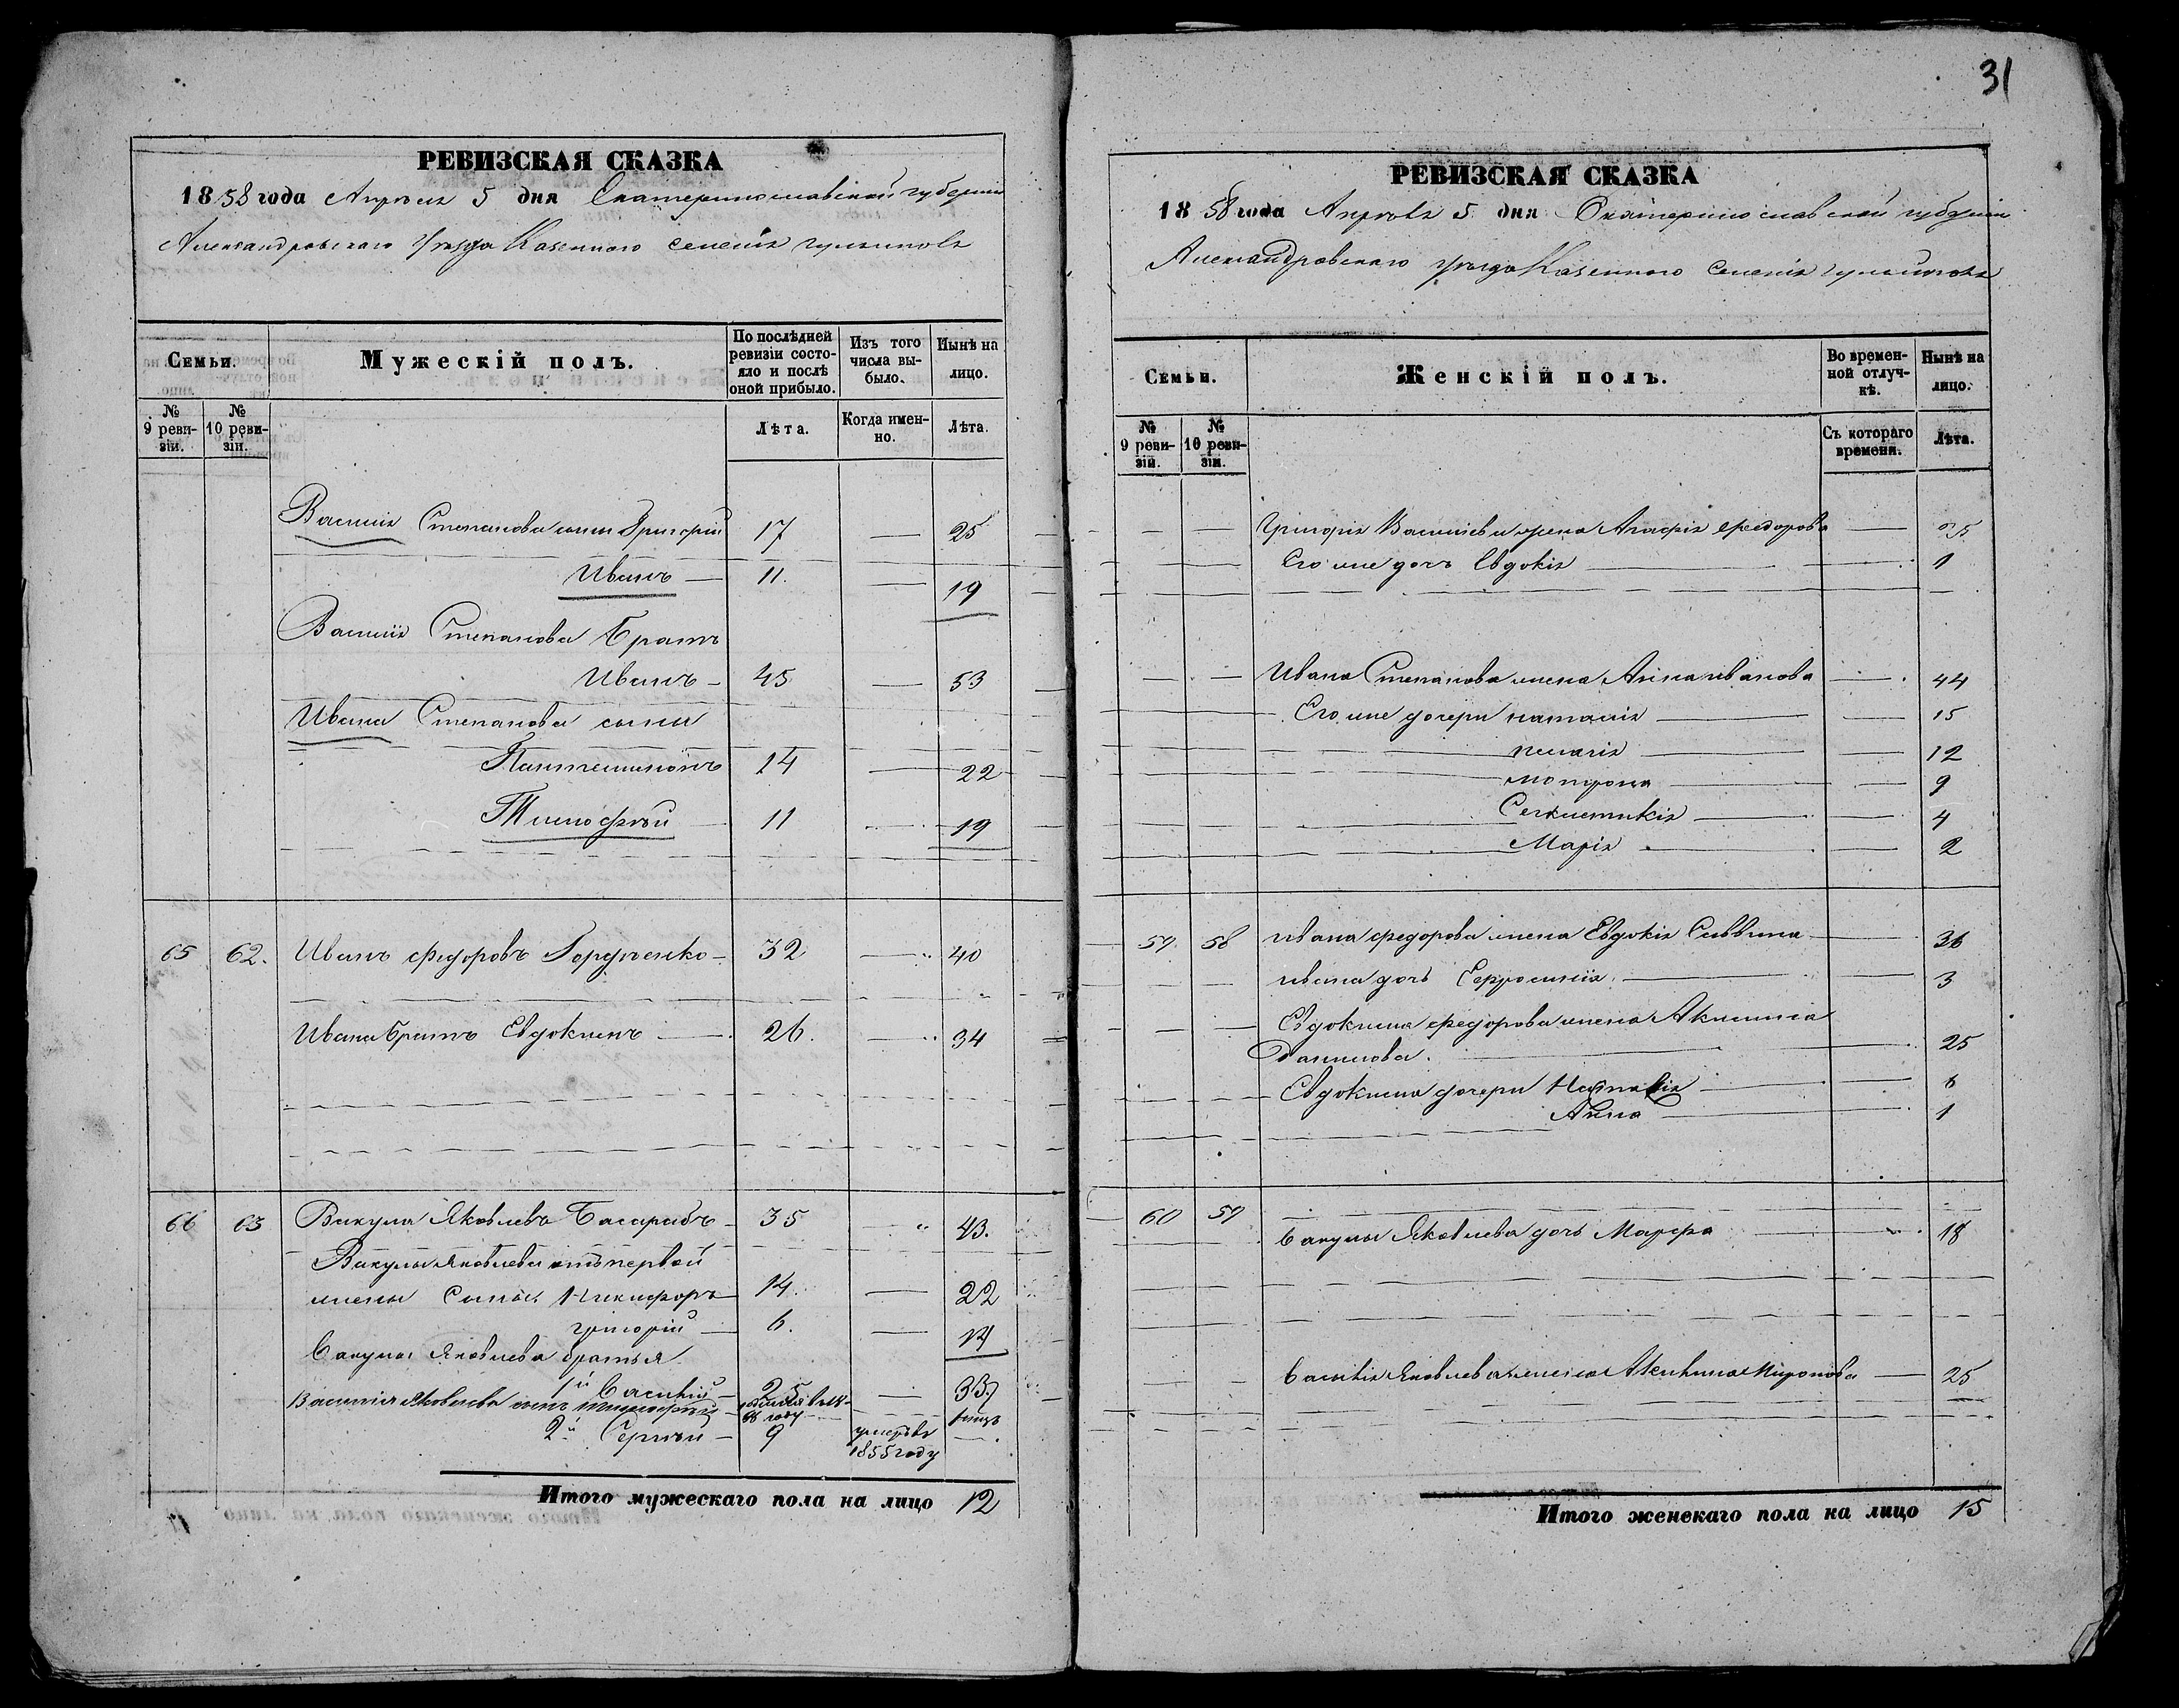 31
РЕВИЗСКАЯ СКАЗКА
1858 года Апреля 5 дня Екатеринославской губернии
Александровскаго уезда Казенного селения
Семьи.
Мужескій полъ.
По послѣдней ревизіи состояло и послѣ оной прибыло.
Изъ того числа выбыло.
Нынѣ на лицо.
№ 9 ревизіи.
№ 10 ревизіи.
Лѣта.
Когда именно.
Лѣта.
Василія Степанова сыны Григорій 17 — 25
Иванъ — 11. — 19
Василія Степанова братъ
Иванъ — 45 — 53
Ивана Степанова сыны
Пантелимонъ 14 — 22
Тимофѣй 11 — 19
65 62. Иванъ Федоровъ Гордѣенко — 32 — 40
Ивана братъ Евдокимъ — 26. — 34
66 63 Викула Яковлевъ Басарабъ — 35 " 43.
Викулы Яковлева отъ первой
жены сыны Никифоръ 14. — 22
григорій — 6. — 14
Вакулы Яковлева братья
1й Василій — 25 — 33
Василія Яковлева сынъ Тимофей
2й Сергѣй — 9 умеръ в 1855 году —
Итого мужескаго пола на лицо 12
РЕВИЗСКАЯ СКАЗКА
1858 года Апреля 5 дня Екатеринославской губернии
Александровскаго уезда Казенного селения
Семьи.
Женскій полъ.
Во временной отлучкѣ.
Нынѣ на лицо.
№ 9 ревизіи.
№ 10 ревизіи.
Съ котораго времени.
Лѣта.
Григорія Васильева жена Агафія Федорова — 25
Его же дочь Евдокія — 1
Ивана Степанова жена Анна иванова — 44
Его же дочери наталія — 15
пелагія — 12
мотрона — 9
— 4
Марія — 2
59 58 ивана федорова жена Евдокія Саввина — 36
ивана дочь Ефросинія — 3
Евдокима федорова жена Акилина
Данилова. — 25
Евдокима дочери Наталія — 6
Анна — 1
60 59
Вакулы Яковлева дочь Марфа — 18
Василія Яковлева жена Акилина Миронова — 25
Итого женскаго пола на лицо 15